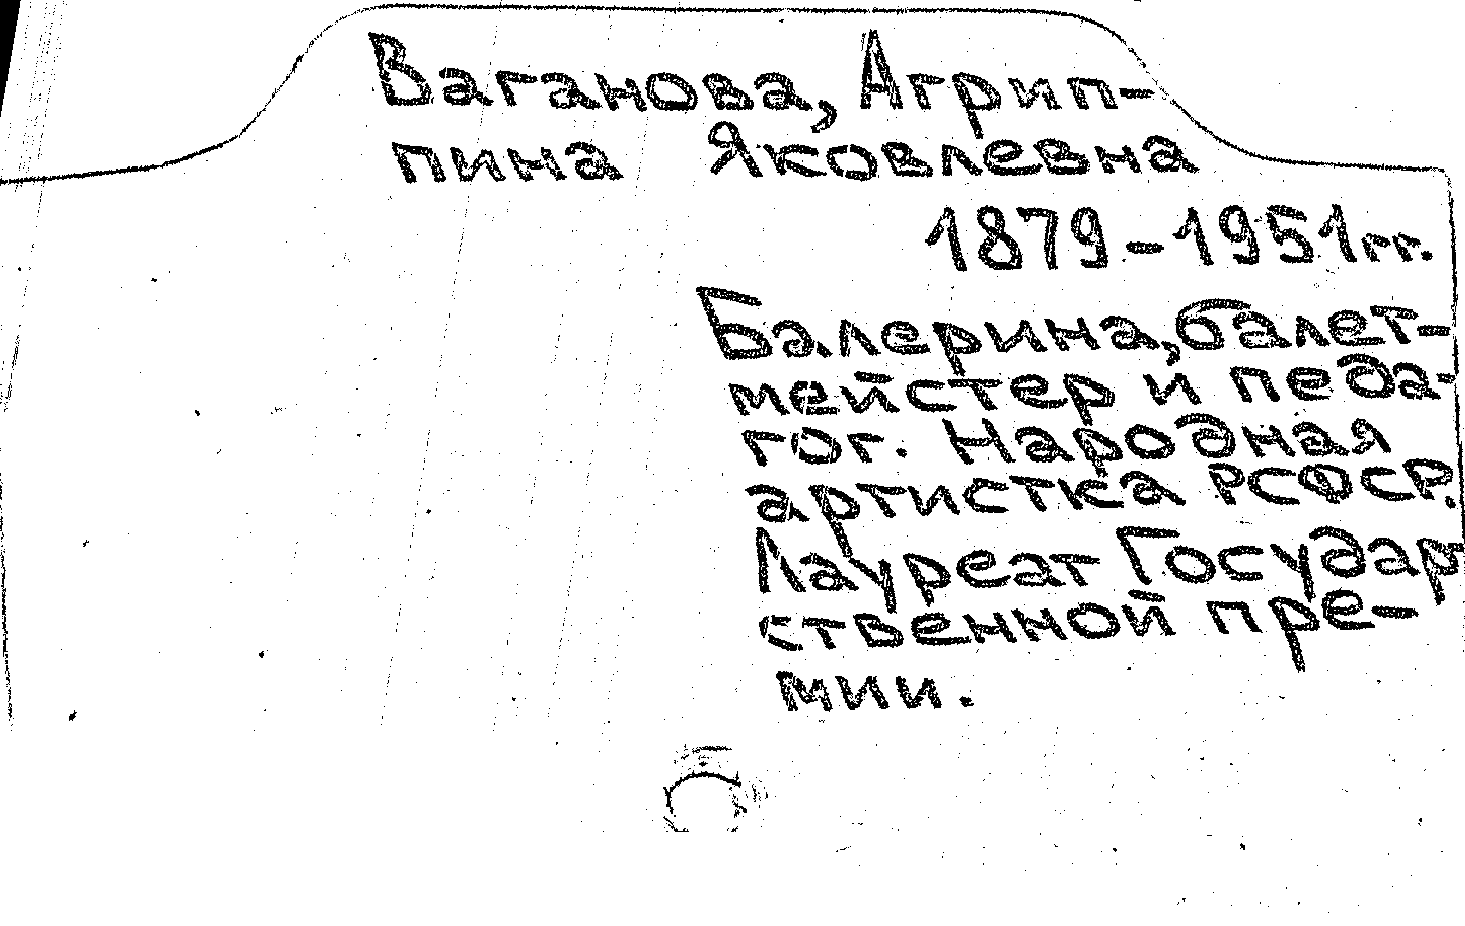 Ваганова, Агрип-
пина Яковлевна
1879-1951гг.
Балерина, балет-
мейстер и педа-
гог. Народная
артистка РСФСР.
Лауреат Государ
ственной пре-
мии.